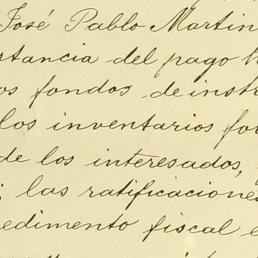 José Pablo Martin
stancia del pago h
os fondos de instr
los inventarios for
de los interesados,
; las ratificacione
edimento fiscal e